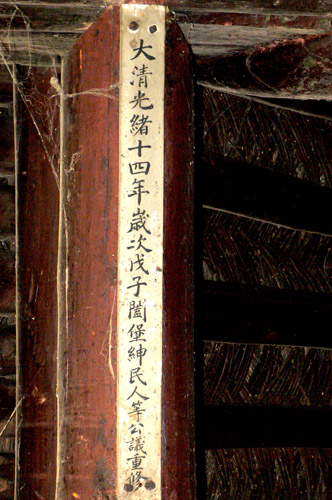 大清光緒十四年歲次戊子闔堡紳民人等公議重修